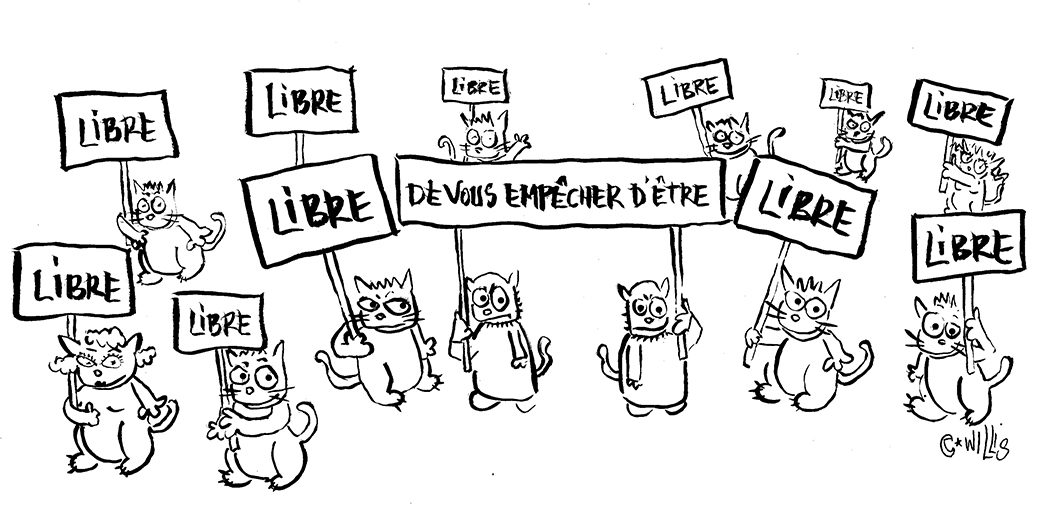 LiBRE
LiBRE
LiBRE
LiBRE
LiBRE
LiBRE
LiBRE
DE VOUS EMPÊCHER D'ÊTRE
LiBRE
LiBRE
LiBRE
LiBRE
©*WiLLiS